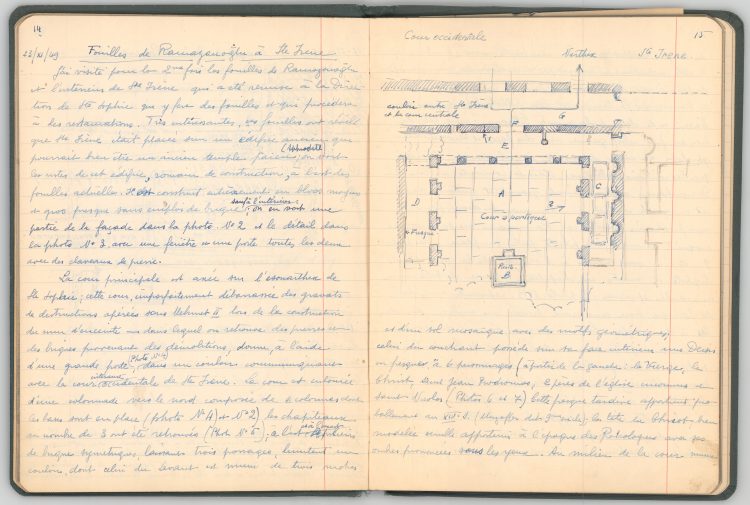 14
23/XI/49 Fouilles de Ramazanoğlu à Ste Irène
J'ai visité pour la 2me fois les fouilles de Ramazanoğlu
et l'intérieur de Ste Irène qui a été remise à la Direc
tion de Ste Sophie qui y fera des fouilles et qui procèdera
à des restaurations. Très intéressantes, ces fouilles ont établi
que Ste Irène était placée sur un édifice ancien que
pourrait bien être un ancien temple païen, on voit
(Aphrodite)
les restes de cet édifice, romain de construction, à l'est des
fouilles actuelles. Il est construit entièrement en blocs
et gros presque sans emploi de brique; on en voit une
sauf à l'intérieur
partie de la façade dans la photo No 2 et le détail dans
la photo No 3 avec une fenêtre et une porte toutes les deux
avec des claveaux de pierre.
La cour principale est axée sur l'esonarthex de
Ste Sophie; cette cour, imparfaitement débarrassée des gravats
de destructions opérées sous Mehmet II lors de la construction
du mur d'enceinte dans lequel on retrouve des pierres et
des briques provenant des démolitions, donne, à l'aide
d'une grande porte, dans un couloir communiquant
(Photo No 4)
avec la cour occidentale de Ste Irène. La cour est entourée
intérieure
d'une colonnade vers le nord composée de 6 colonnes dont
les bases sont en place (photo No 1 et No 2) les chapiteaux
au nombre de 3 ont été retrouvés (Photo No 5); à l'est
de brique symétriques laissant trois passages, limitent un
couloir, dont celui du levant est muni de trois niches
15
Cour occidentale
Narthex Ste IRENE
couloir entre Ste Irène
et la cour centrale
F
G
E
A
Cour à portique
C
D
Fresque
Puits
B
et d'un sol mosaïque avec des motifs géométriques;
celui du couchant possède sur sa face intérieure une Deesis
en fresques à 6 personnages (à partir de la gauche: la Vierge, le
Christ, Saint Jean Prodromos, 2 pères de l'église inconnus et
saint Nicolas (Photos 6 et 7) cette fresque tardive appartient pro
bablement au XIIIe s. la tête du Christ, bien
modelée semble appartenir à l'époque des Paléologues avec ses
ombres prononcées sous les yeux. Au milieu de la cour